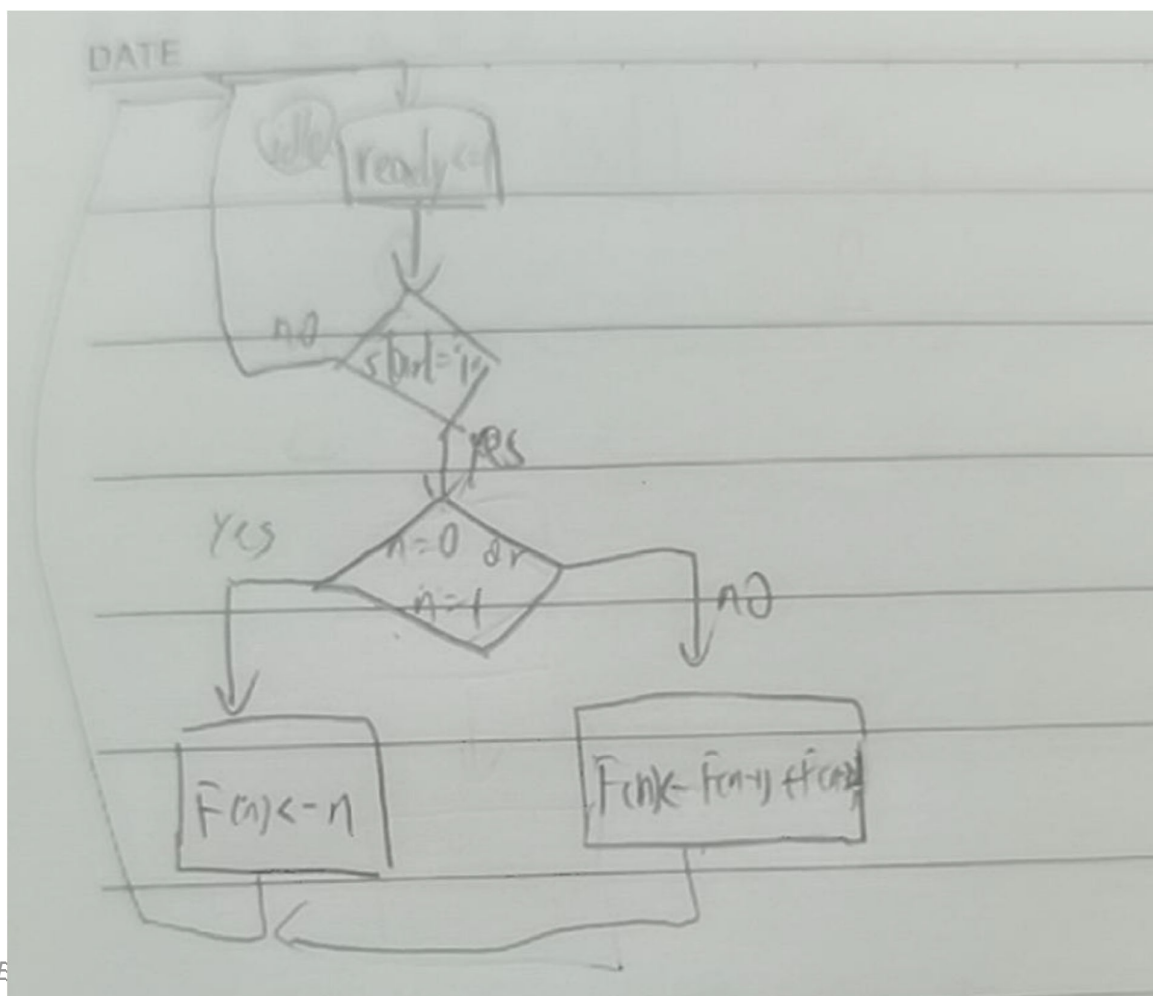 DATE
idle
ready<=1
no
start='1'
yes
Yes
n=0 or
n=1
no
F(n)<-n
F(n)<-F(n-1)+F(n-2)